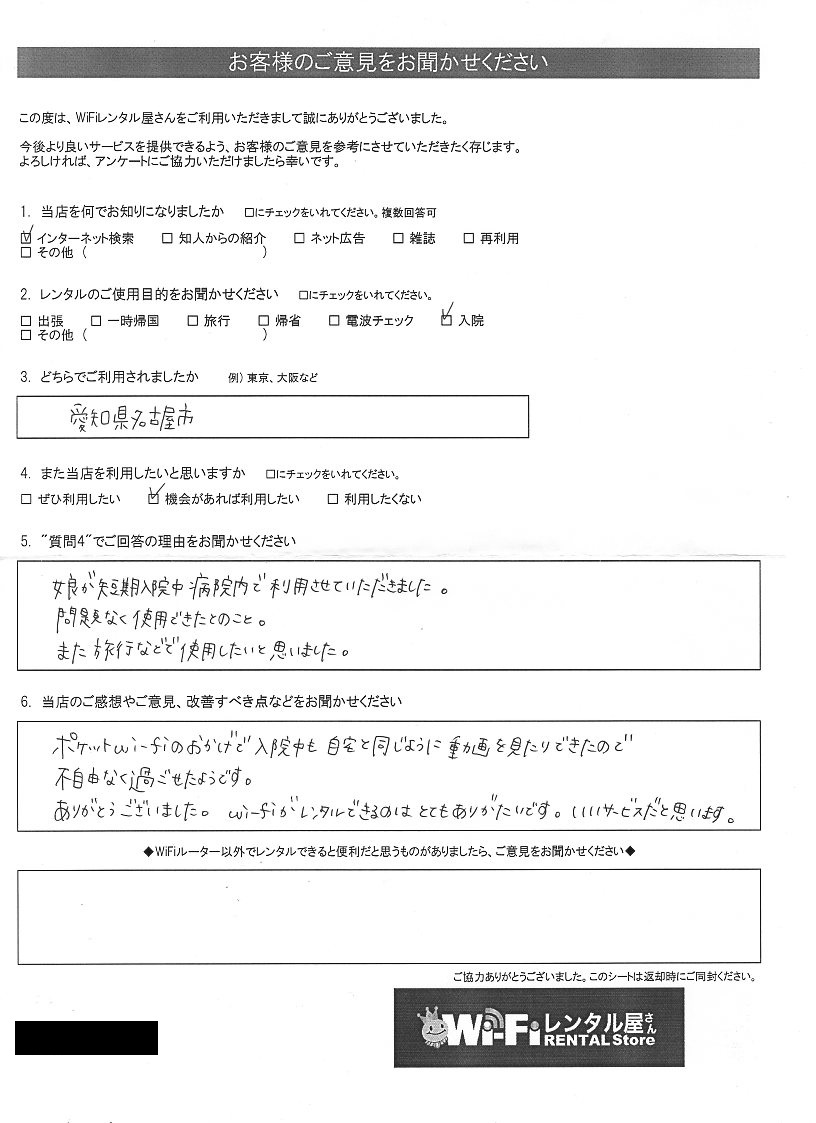 お客様のご意見をお聞かせください
この度は、WiFiレンタル屋さんをご利用いただきまして誠にありがとうございました。
今後より良いサービスを提供できるよう、お客様のご意見を参考にさせていただきたく存じます。
よろしければ、アンケートにご協力いただけましたら幸いです。
1. 当店を何でお知りになりましたか □にチェックをいれてください。複数回答可
☑ インターネット検索 □ 知人からの紹介 □ ネット広告 □ 雑誌 □ 再利用
□ その他 ( )
2. レンタルのご使用目的をお聞かせください □にチェックをいれてください。
□ 出張 □ 一時帰国 □ 旅行 □ 帰省 □ 電波チェック ☑ 入院
□ その他 ( )
3. どちらでご利用されましたか 例) 東京、大阪など
愛知県名古屋市
4. また当店を利用したいと思いますか □にチェックをいれてください。
□ ぜひ利用したい ☑ 機会があれば利用したい □ 利用したくない
5. "質問4"でご回答の理由をお聞かせください
娘が短期入院中病院内で利用させていただきました。
問題なく使用できたとのこと。
また旅行などで使用したいと思いました。
6. 当店のご感想やご意見、改善すべき点などをお聞かせください
ポケットwi-fiのおかげで入院中も自宅と同じように動画を見たりできたので
不自由なく過ごせたようです。
ありがとうございました。wi-fiがレンタルできるのはとてもありがたいです。いいサービスだと思います。
◆WiFiルーター以外でレンタルできると便利だと思うものがありましたら、ご意見をお聞かせください◆
ご協力ありがとうございました。このシートは返却時にご同封ください。
Wi-Fiレンタル屋さん
RENTAL Store